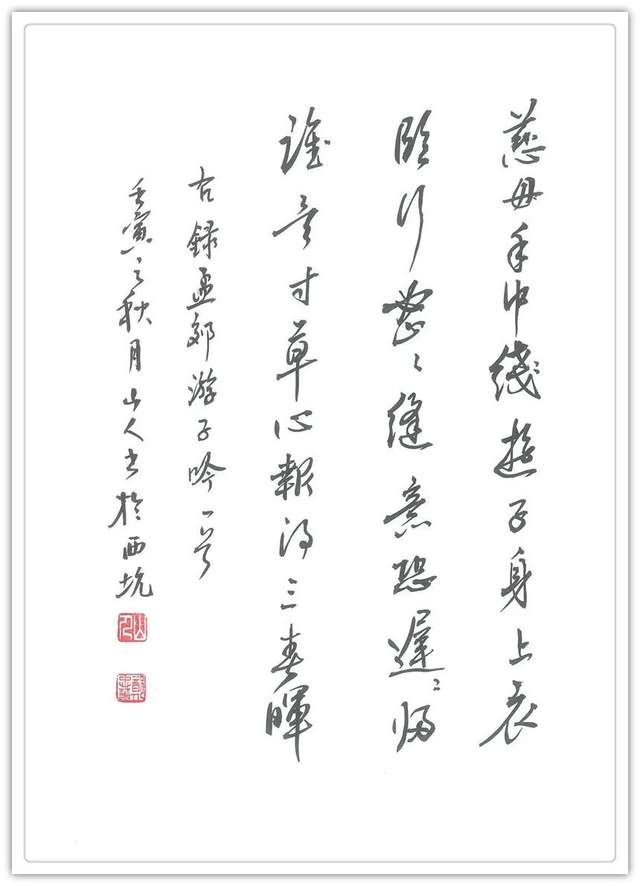 慈母手中线遊子身上衣
临行密々缝意恐遲々归
谁言寸草心報得三春暉
右録孟郊游子吟一首
壬寅之秋月山人书於西坑